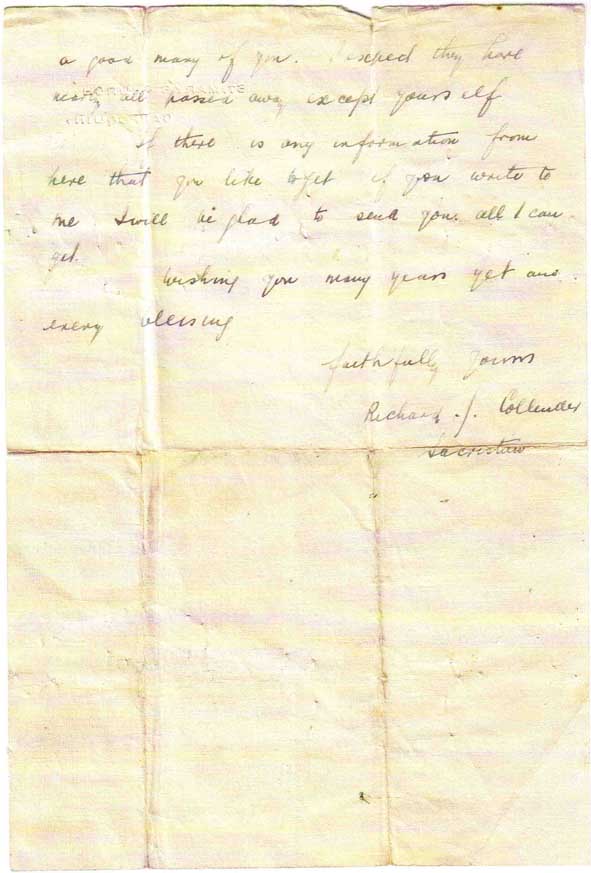 a good many of you. I expect they have
nearly all passed away except yourself
If there is any information from
here that you like to get if you write to
me I will be glad to send you all I can
get.
Wishing you many years yet and
every blessing
faithfully yours
Richard J. Collender
Sacristan